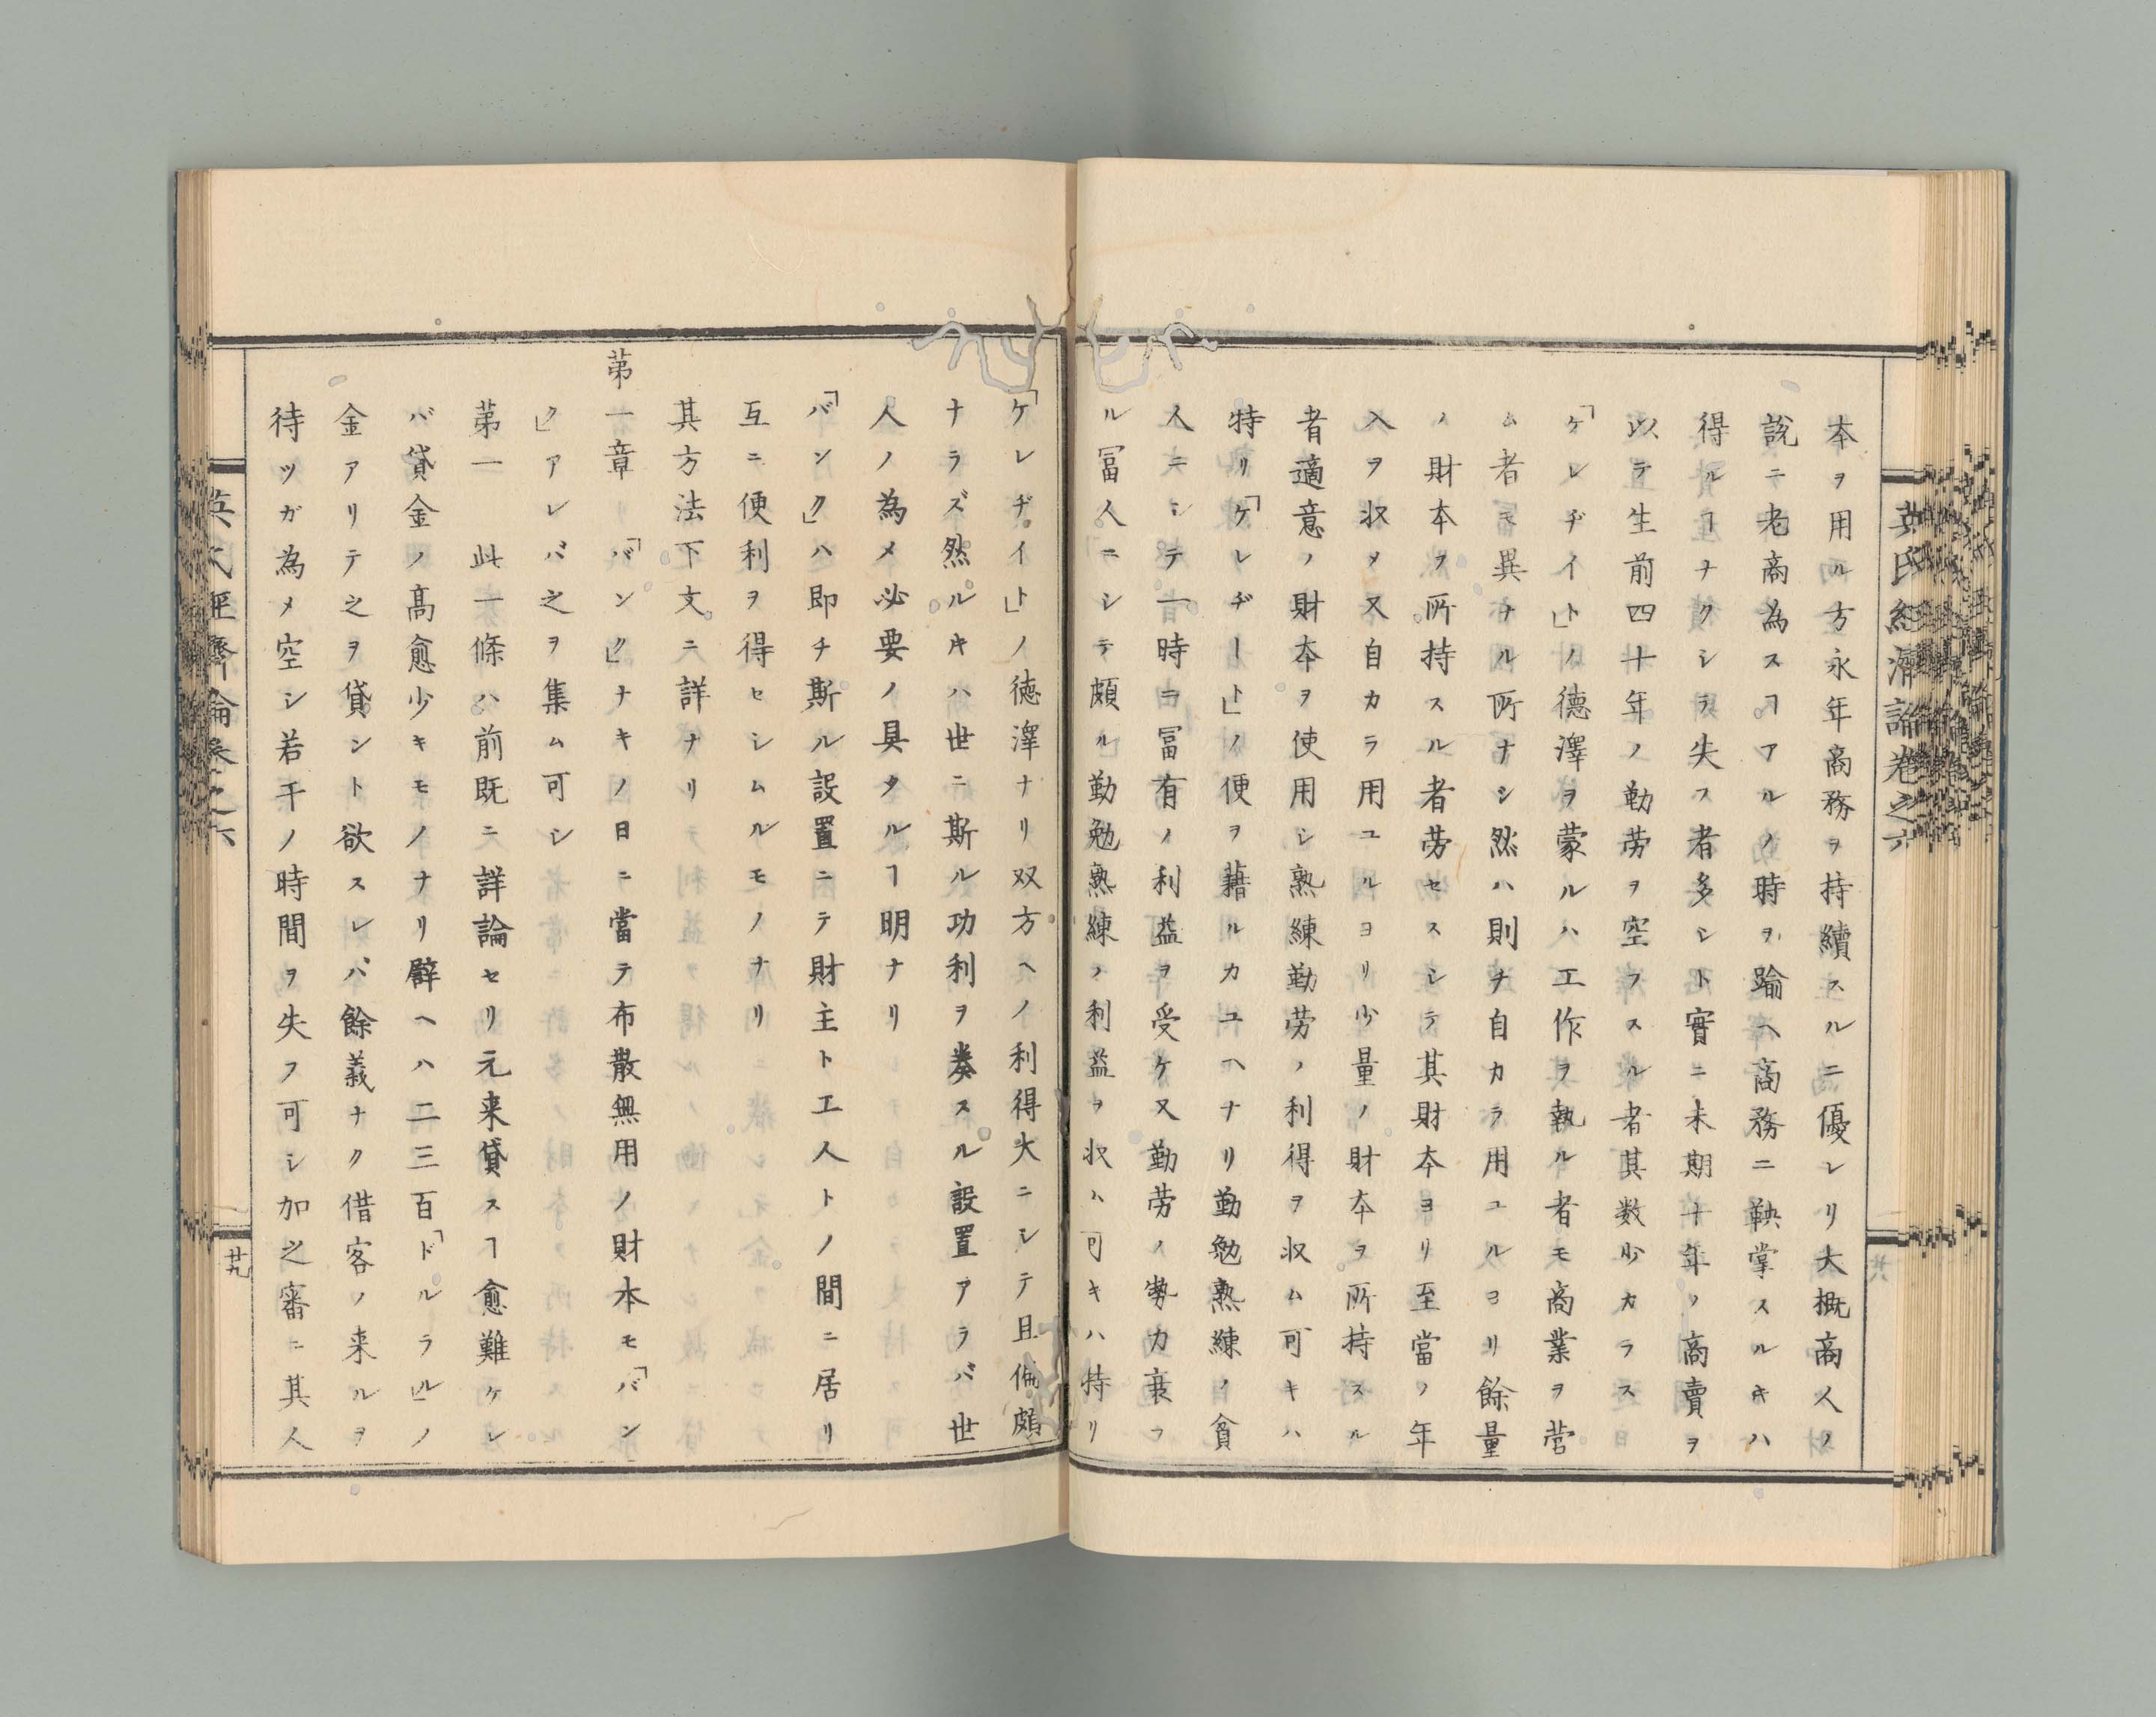 英氏經濟論卷之六
本ヲ用ル方永年商務ヲ持續スルニ優レリ大概商人ノ
説ニ老商為スヿアルノ時ヲ踰ヘ商務ニ鞅掌スルキハ
得ルヿナクシテ失フ者多シト實ニ末期十年ノ商賣ヲ
以テ生前四十年ノ勤劳ヲ空フスル者其数少カラス
「ケレヂイト」ノ德澤ヲ蒙ルハ工作ヲ執ル者モ商業ヲ営
ム者モ異ナル所ナシ然ハ則チ自カラ用ユルヨリ餘量
ノ財本ヲ所持スル者劳セスシテ其財本ヨリ至當ノ年
入ヲ収メ又自カラ用ユルヨリ少量ノ財本ヲ所持スル
者適意ノ財本ヲ使用シ熟練勤劳ノ利得ヲ収ム可キハ
特リ「ケレヂート」ノ便ヲ藉ルカユヘナリ勤勉熟練ノ貧
人ニシテ一時ニ冨有ノ利益ヲ受ケ又勤劳ノ勢力衰フ
ル冨人ニシテ頗ル勤勉熟練ノ利益ヲ収ハ可キハ特リ
「ケレヂイト」ノ徳澤ナリ双方ヘノ利得大ニシテ且偏頗
ナラズ然ルキハ世ニ斯ル功利ヲ奏スル設置アラバ世
人ノ為メ必要ノ具タルヿ明ナリ
「バンク」ハ即チ斯ル設置ニテ財主ト工人トノ間ニ居リ
互ニ便利ヲ得セシムルモノナリ
其方法下文ニ詳ナリ
第一章 「バンク」ナキノ日ニ當テ布散無用ノ財本モ「バン
ク」アレバ之ヲ集ム可シ
第一 此一條ハ前既ニ詳論セリ元来貸スヿ愈難ケレ
バ貸金ノ髙愈少キモノナリ辟ヘハ二三百「ドルラル」ノ
金アリテ之ヲ貸ント欲スレバ餘義ナク借客ノ来ルヲ
待ツガ為メ空シ若干ノ時間ヲ失フ可シ加之審ニ其人
英氏經濟論卷之六
廿九